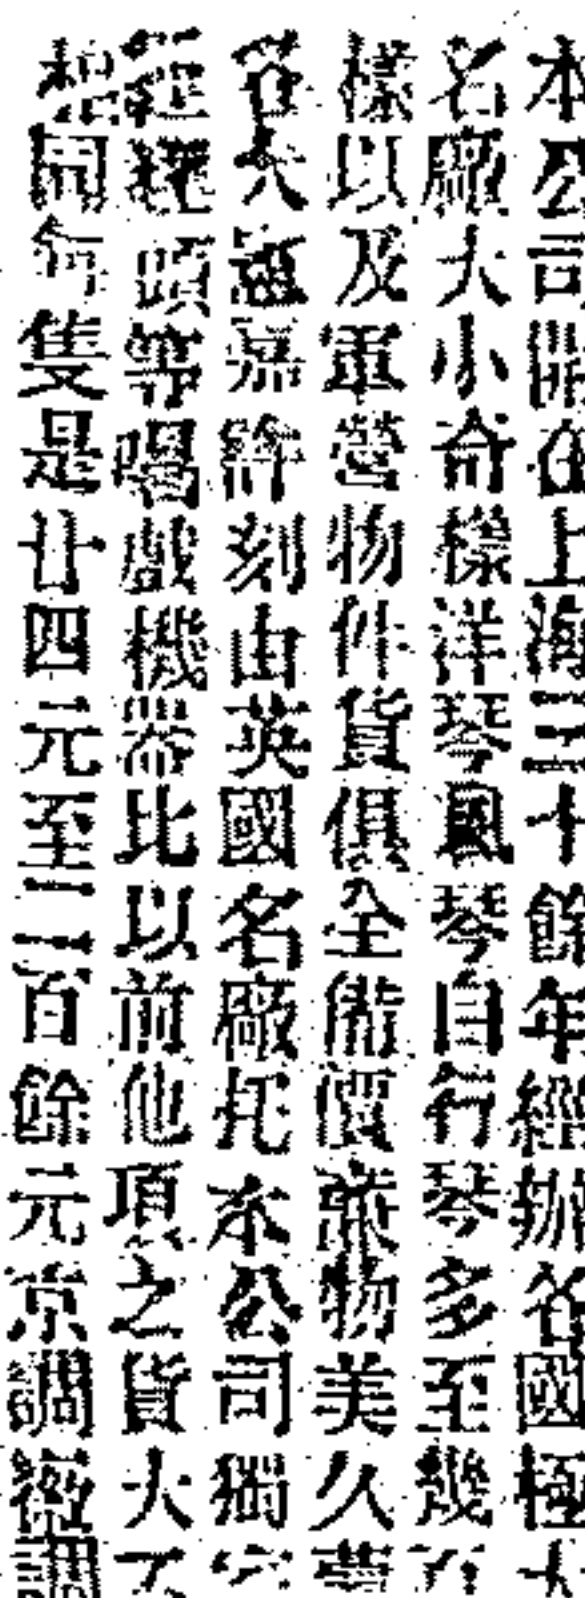 本公司開在上海三十餘年經辦各國極大
名廠大小奇樣洋琴風琴自行琴多至幾百
樣以及軍營物件貨俱全備價廉物美久蒙
各大憲嘉許刻由英國名廠托本公司獨
經理頭等唱戲機器比以前他項之貨大不
相同每隻是廿四元至二百餘元京調徽調